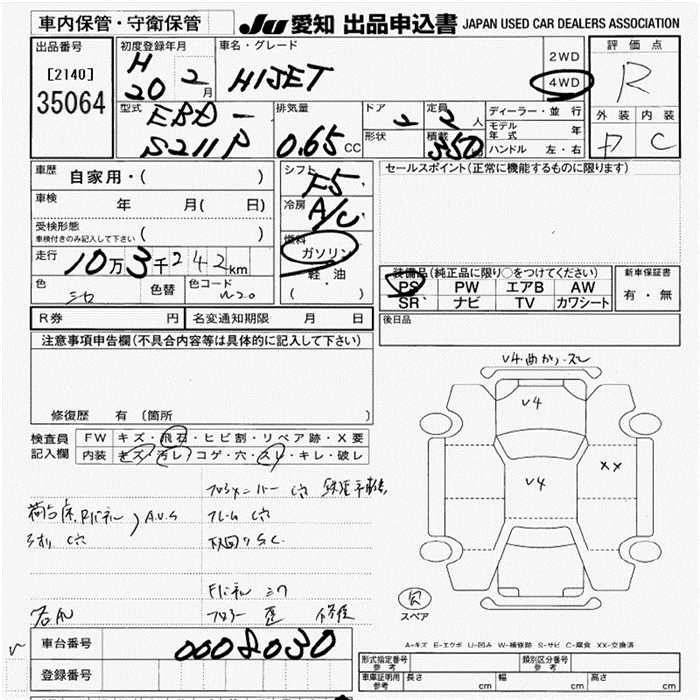 車内保管・守衛保管
JU 愛知 出品申込書 JAPAN USED CAR DEALERS ASSOCIATION
出品番号
[2140]
35064
初度登録年月
H
20 2月
車名・グレード
HIJET
2WD
4WD
評価点
R
外装 内装
D C
型式
EBD-
S211P
排気量
0.65 CC
ドア 2
形状
定員 2人
積載 350
ディーラー・並行
モデル年式 年
ハンドル 左・右
車歴
自家用・( )
車検
年 月( 日)
受検形態
車検付きのみ記入して下さい ( )
走行
10万3千242km
色
シロ
色替
色コード
W20
シフト
F5
冷房
A/C
燃料
ガソリン
軽油
( )
セールスポイント(正常に機能するものに限ります)
装備品(純正品に限り○をつけてください)
PS PW エアB AW
SR ナビ TV カワシート
新車保証書
有・無
R券 円
名変通知期限 月 日
後日品
注意事項申告欄(不具合内容等は具体的に記入して下さい)
修復歴 有(箇所
検査員
記入欄
FW キズ・飛石・ヒビ割・リペア跡・X要
内装 キズ・汚レ・コゲ・穴・スレ・キレ・破レ
V4
V4
XX
フレーム C穴
下回りS.C.
Fパネル
フロアー 歪 修復
スペア
A-キズ E-エクボ U-凹み W-補修跡 S-サビ C-腐食 XX-交換済
車台番号
0008030
登録番号
形式指定番号
参考
類別区分番号
参考
車庫証明用
参考
長さ cm
幅 cm
高さ cm